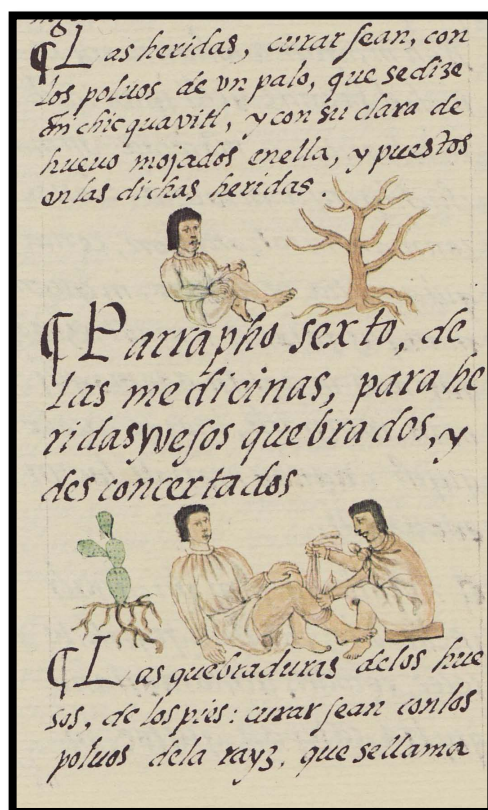 ¶ Las heridas, curar sean, con
los poluos de vn palo, que sedize
chicquavitl, y con su clara de
hueuo mojados enella, y puestos
enlas dichas heridas.
¶ Parrapho sexto, de
las medicinas, para he
ridasyvesos quebrados, y
desconcertados
¶ Las quebraduras delos hue
sos, de los pies: curar sean conlos
poluos dela rayz, que sellama